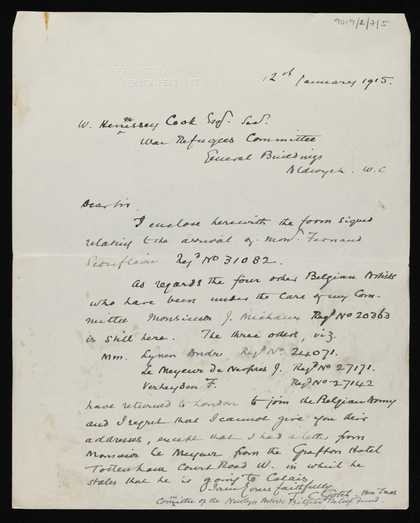 9019/2/7/5
12th January 1915.
W. Hennessey Cook Esqr. Sec.
War Refugees Committee
General Buildings
Aldwych. W.C
Dear Sir
I enclose herewith the form signed
relating to the arrival of Monr. Fernand
Regd No 31082.
As regards the four other Belgian Artists
who have been under the care of my Com-
mittee Monsieur J. Michaux Regd No 20363
is still here. The three others, viz.
MM. Lynen Andre Regd No 24071.
Le Mayeur De Merprès J. Regd No 27171.
Verheyden F. Regd No 27142
have returned to London to join the Belgian Army
and I regret that I cannot give you their
addresses, except that I had a letter from
Monsieur Le Mayeur from the Grafton Hotel
Tottenham Court Road W. in which he
states that he is going to Calais
I am yours faithfully
T. C. Gotch. Hon Treas
Committee of the Newlyn Artists Belgian Relief Fund.